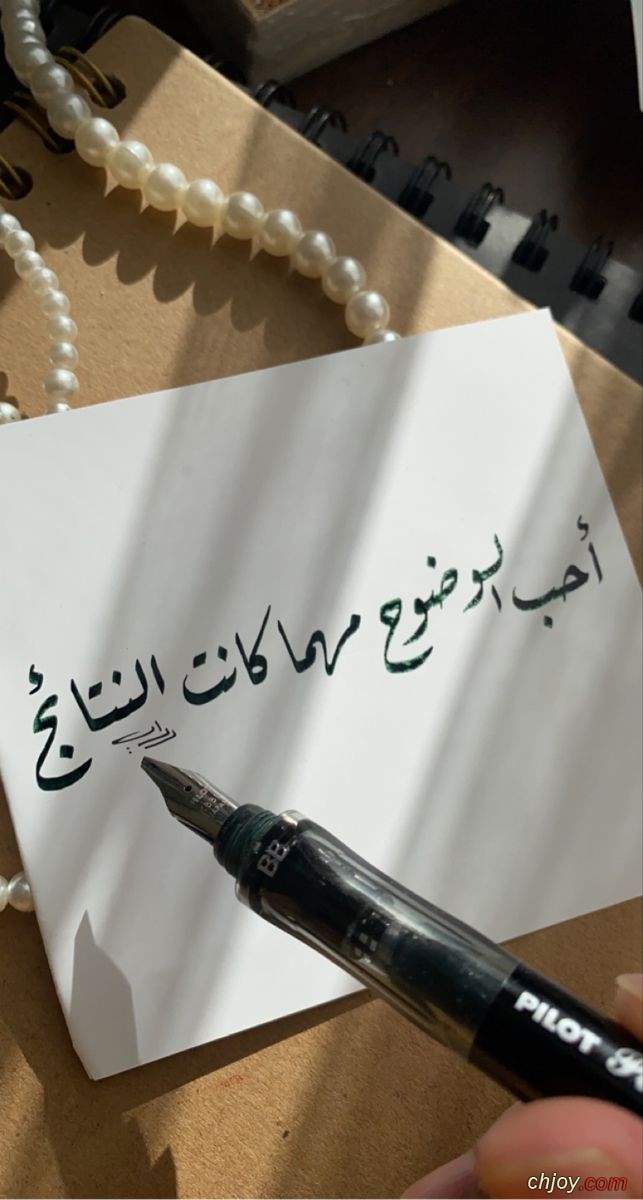 أحب الوضوح مهما كانت النتائج
BB
PILOT
chjoy.com